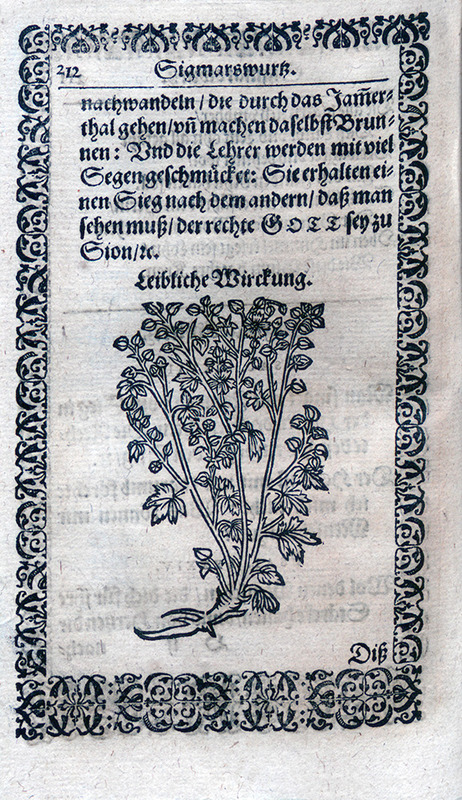 212 Sigmarswurtz.
nachwandeln / die durch das Jam̃er-
thal gehen / vñ machen daselbst Brun-
nen: Vnd die Lehrer werden mit viel
Segen geschmücket: Sie erhalten ei-
nen Sieg nach dem andern / daß man
sehen muß / der rechte GOTT sey zu
Sion / ꝛc.
Leibliche Wirckung.
Diß